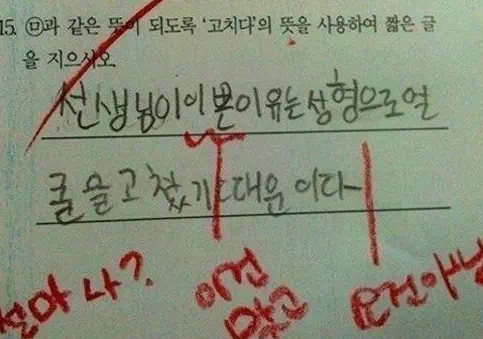 15. ㉤과 같은 뜻이 되도록 '고치다'의 뜻을 사용하여 짧은 글
을 지으시오.
선생님이 이쁜이유는 성형으로 얼
굴을 고쳤기 때문이다
설마 나?
이건
맞고
요건 아님